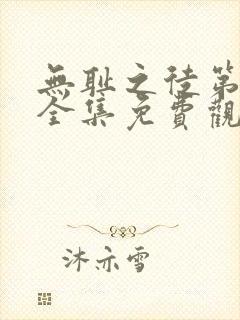 無耻之徒第
全集免費觀
沐亦雪